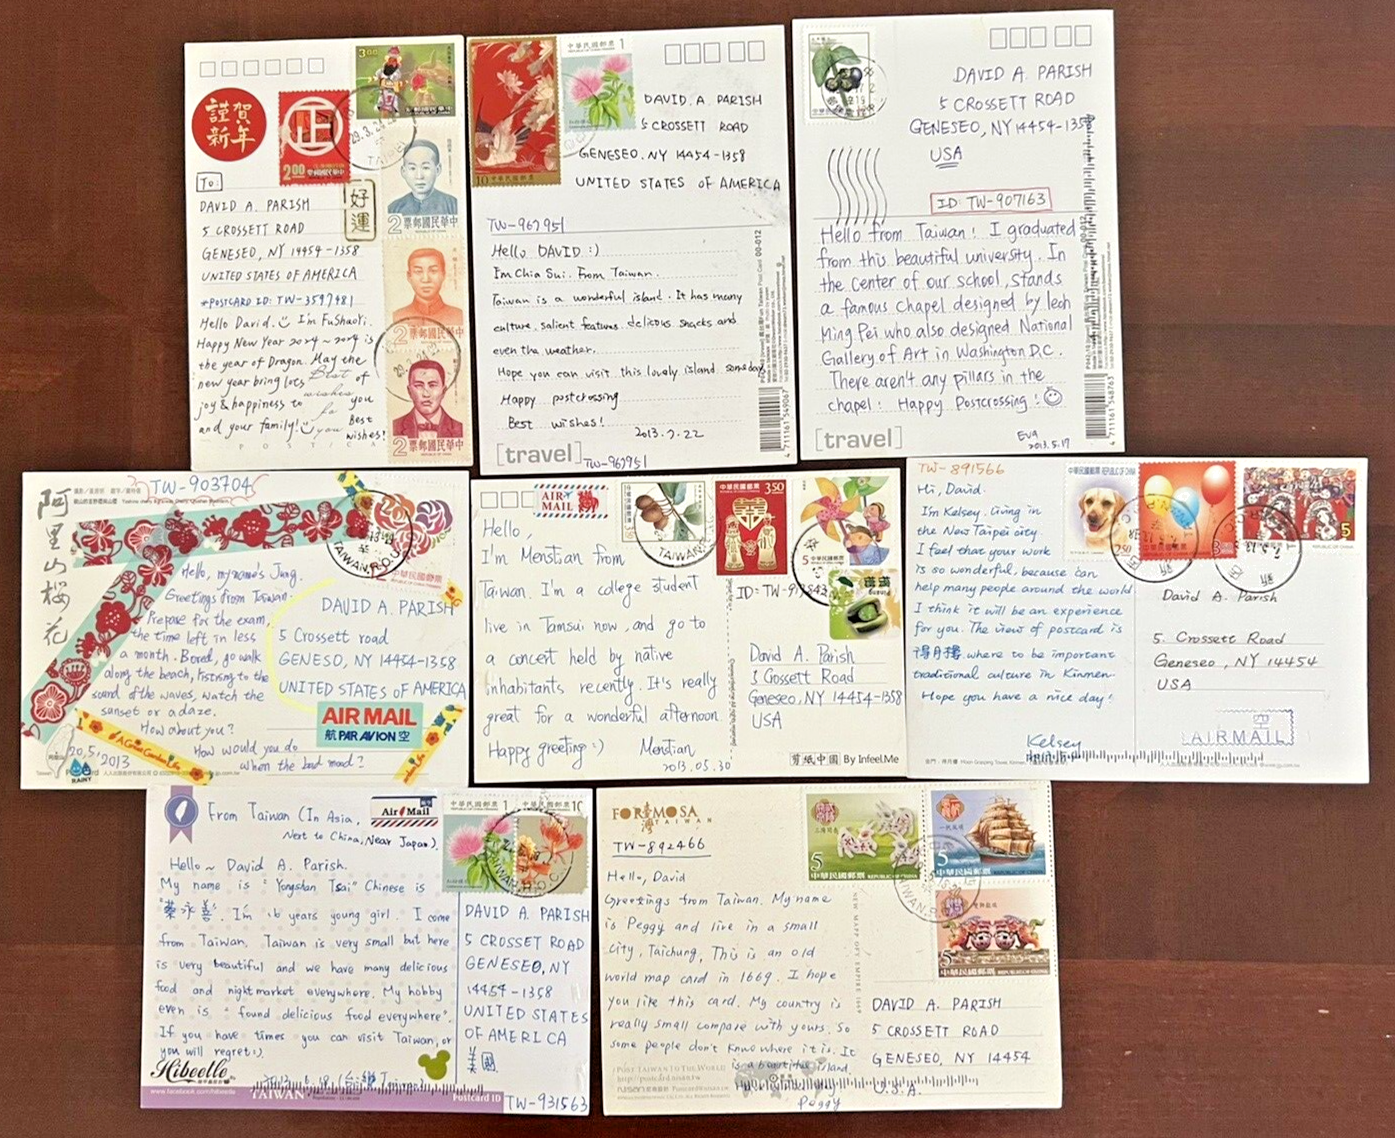 謹賀
新年
3.00
正
2.00
To:
DAVID A. PARISH
5 CROSSETT ROAD
GENESEO, NY 14454-1358
UNITED STATES OF AMERICA
*POSTCARD ID: TW-3597481
Hello David. I'm FuShaoYi.
Happy New Year 2024~2024 is
the year of Dragon. May the
new year bring lots Best of
joy & happiness to wishes you
and your family! for you Best
wishes!
好運
2 票郵國民華中
2 票郵國民華中
2 票郵國民華中
10 中華民國郵票
中華民國郵票 1
REPUBLIC OF CHINA
DAVID A. PARISH
5 CROSSETT ROAD
GENESEO. NY 14454-1358
UNITED STATES OF AMERICA
TW-967951
Hello DAVID :)
I'm Chia Sui. From Taiwan.
Taiwan is a wonderful island. It has many
culture. salient features. delicious snacks and
even the weather.
Hope you can visit this lovely island someday.
Happy postcrossing
Best wishes!
2013.7.22
[travel]
TW-967951
4 711161 549067
DAVID A. PARISH
5 CROSSETT ROAD
GENESEO, NY 14454-1358
USA
ID: TW-907163
Hello from Taiwan! I graduated
from this beautiful university. In
the center of our school, stands
a famous chapel designed by Ieoh
Ming Pei who also designed National
Gallery of Art in Washington D.C.
There aren't any pillars in the
chapel! Happy Postcrossing!
Eva
2013.5.17
[travel]
4 711161 548763
阿里山桜花
TW-903704
TAIWAN R.O.C.
中華民國郵票
Hello, my name's Jung.
Greetings from Taiwan.
Prepare for the exam,
the time left in less
a month. Bored, go walk
along the beach, listning to the
sound of the waves, watch the
sunset or a daze.
How about you?
How would you do
when the bad mood?
DAVID A. PARISH
5 Crossett road
GENESO, NY 14454-1358
UNITED STATES OF AMERICA
AIR MAIL
航 PAR AVION 空
A Great Garden Life
20,5/2013
RAINY
AIR MAIL
Hello,
I'm Menstian from
Taiwan. I'm a college student
live in Tamsui now, and go to
a concert held by native
inhabitants recently. It's really
great for a wonderful afternoon.
Happy greeting :)
Menstian
2013.05.30
中華民國郵票 3.50
5 中華民國郵票
David A. Parish
3 Gossett Road
Geneseo, NY 14454-1358
USA
剪紙中國 By Infeel.Me
TW-891566
Hi, David.
I'm Kelsey. Living in
the New Taipei city.
I feel that your work
is so wonderful, because can
help many people around the world
I think it will be an experience
for you. The view of postcard is
得月樓 where to be important
traditional culture in Kinmen.
Hope you have a nice day!
Kelsey
中華民國郵票 REPUBLIC OF CHINA
2.50
5
REPUBLIC OF CHINA
David A. Parish
5. Crossett Road
Geneseo, NY 14454
USA
AIRMAIL
From Taiwan (In Asia,
Next to China, Near Japan).
Air Mail
中華民國郵票 1
中華民國郵票 10
Hello~ David A. Parish.
My name is "Yongshan Tsai" Chinese is
"蔡永善". I'm 16 years young girl. I come
from Taiwan. Taiwan is very small but here
is very beautiful and we have many delicious
food and nightmarket everywhere. My hobby
even is "found delicious food everywhere".
If you have times you can visit Taiwan, or
you will regret :).
DAVID A. PARISH
5 CROSSET ROAD
GENESEO, NY
14454-1358
UNITED STATES
OF AMERICA
美國
Hibeetle
www.facebook.com/hibeetle
TAIWAN
Postcard ID
TW-931563
FORMOSA
台灣 TAIWAN
TW-892466
Hello, David
Greetings from Taiwan. My name
is Peggy and live in a small
city, Taichung, This is an old
world map card in 1669. I hope
you like this card. My country is
really small compare with yours. So
some people don't know where it is. It
is a beautiful island.
Peggy
NEW MAPP OFF EMPIRE 1669
5 中華民國郵票 REPUBLIC OF CHINA
5 中華民國郵票
5 中華民國郵票 REPUBLIC OF CHINA
DAVID A. PARISH
5 CROSSETT ROAD
GENESEO, NY 14454
U.S.A.
POST TAIWAN TO THE WORLD